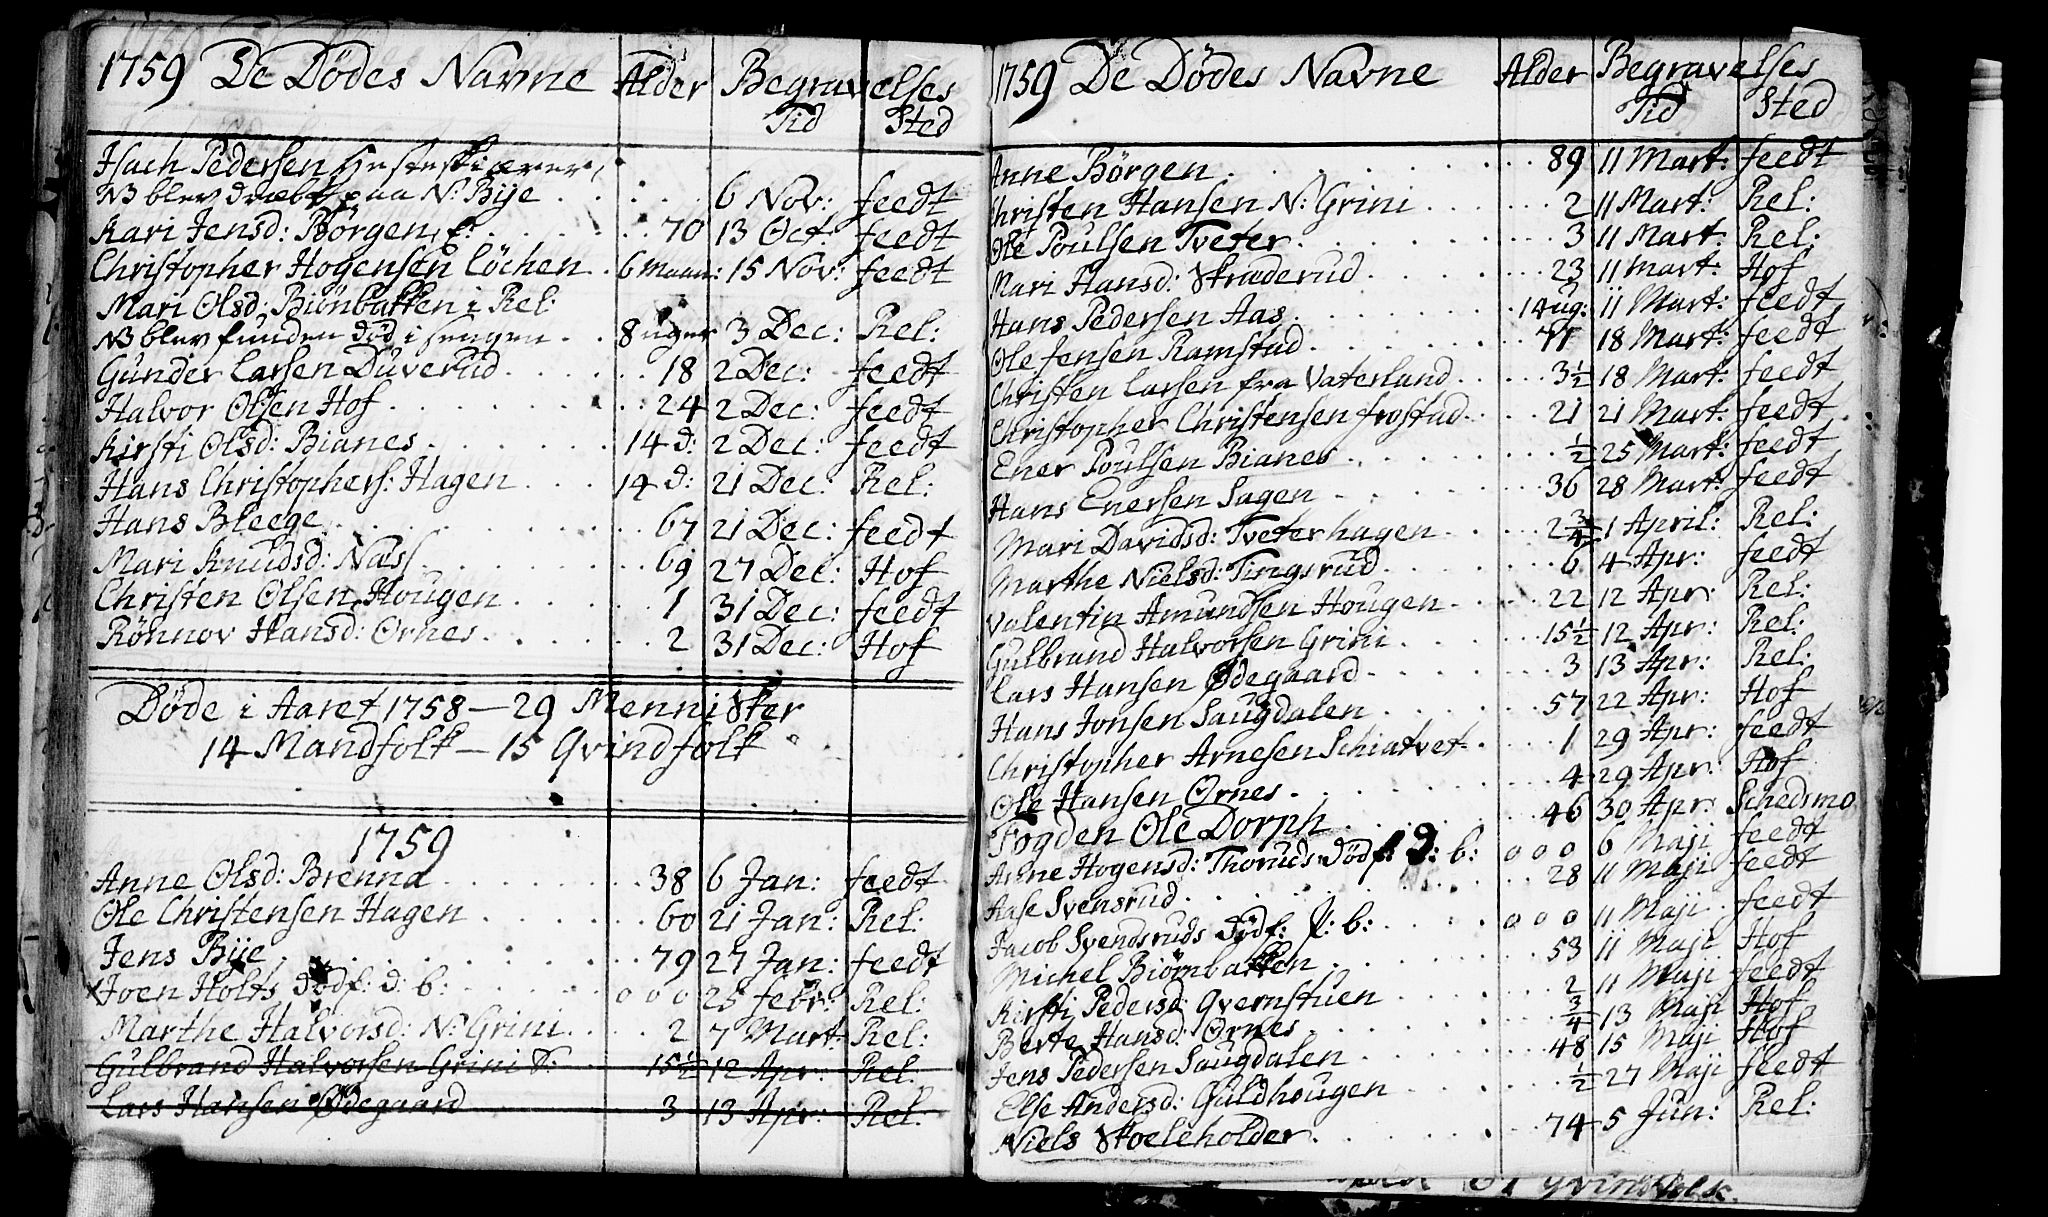 1759 De Dödes Navne Alder Begravelses
Tid Sted
Isach Pedersen Hesteskiærer,
NB blev dræbt paa N: Bije . . . . . . 6 Nov: feedt
Kari Jensd: Börgen, f: . . . . . . 70 13 Oct: feedt
Christopher Hogensen Löchen . 6 Maan: 15 Nov: feedt
Mari Olsd: Biönbakken i Rel:
NB blev funden död i sengen . . 8 uger 3 Dec: Rel:
Gunder Larsen Duverud . . . . . . 18 2 Dec: feedt
Halvor Olsen Hof . . . . . . . . 24 2 Dec: feedt
Kirsti Olsd: Bianes . . . . . . 14 d: 2 Dec: feedt
Hans Christophers: Hagen . . . . 14 d: 21 Dec: Rel:
Hans Bleege . . . . . . . . 67 21 Dec: feedt
Mari Knudsd: Næss . . . . . . 69 27 Dec: Hof
Christen Olsen Hougen . . . . . 1 31 Dec: feedt
Rönnov Hansd: Ornes . . . . . . 2 31 Dec: Hof
Döde i Aaret 1758 — 29 Mennisker
14 Mandfolk — 15 Qvindfolk
1759
Anne Olsd: Brenna . . . . . . 38 6 Jan: feedt
Ole Christensen Hagen . . . . . 60 21 Jan: Rel:
Jens Bije . . . . . . . . . . 79 27 Jan: feedt
Joen Holts dödf: d: b: . . . . . o o o 25 febr: Rel:
Marthe Halvorsd: N: Grini . . . . 2 7 Mart: Rel:
Gulbrand Halvorsen Grini . . 15½ 12 Apr: Rel:
Lars Hansen Ødegaard 3 13 Apr: Rel:
1759 De Dödes Navne Alder Begravelses
Tid Sted
Anne Börgen . . . . . . . . 89 11 Mart: feedt
Christen Hansen N: Grini . . . . . . 2 11 Mart: Rel:
Ole Poulsen Tveter . . . . . . . . 3 11 Mart: Rel:
Mari Hansd: Skruderud . . . . . . . 23 11 Mart: Hof
Hans Pedersen Aas . . . . . . . . 14 ug: 11 Mart: feedt
Ole Jensen Ramstad . . . . . . . 77 18 Mart: feedt
Christen Larsen fra Vaterland . . . . . 3½ 18 Mart: feedt
Christopher Christensen frostad . . . . 21 21 Mart: feedt
Ener Poulsen Bianes . . . . . . . ½ 25 Mart: feedt
Hans Enersen Sagen . . . . . . 36 28 Mart: feedt
Mari Davidsd: Tveterhagen . . . . . 2¾ 1 April: Rel:
Marthe Nielsd: Tingsrud . . . . . . 6 4 Apr: feedt
Valentin Amundsen Hougen . . . . . 22 12 Apr: Rel:
Gulbrand Halvorsen Grini . . . . . . 15½ 12 Apr: Rel:
Lars Hansen Ødegaard . . . . . . . 3 13 Apr: Rel:
Hans Jonsen Saugdalen . . . . . . 57 22 Apr: Hof
Christopher Arnesen Schiatvet . . . . 1 29 Apr: feedt
Ole Hansen Ornes . . . . . . . . 4 29 Apr: Hof
Fogden Ole Dorph . . . . . . . 46 30 Apr: Schedsmo
Anne Hogensd: Thoruds dödf: d: b: o o o 6 Maji feedt
Aase Svensrud . . . . . . . . 28 11 Maji feedt
Jacob Svendsruds dödf: p: b: . . . . o o o 11 Maji feedt
Michel Biörnbakken . . . . . . . 53 11 Maji Hof
Kirsti Pedersd: Qvernstuen . . . . . . 2 11 Maji feedt
Berte Hansd: Ornes . . . . . . . ¾ 13 Maji Hof
Jens Pedersen Saugdalen . . . . . . 48 15 Maji Hof
Else Andersd: Guldhougen . . . . . . ½ 27 Maji feedt
Niels Skoeleholder . . . . . . . 74 5 Jun: Rel:
Qvindfolk.